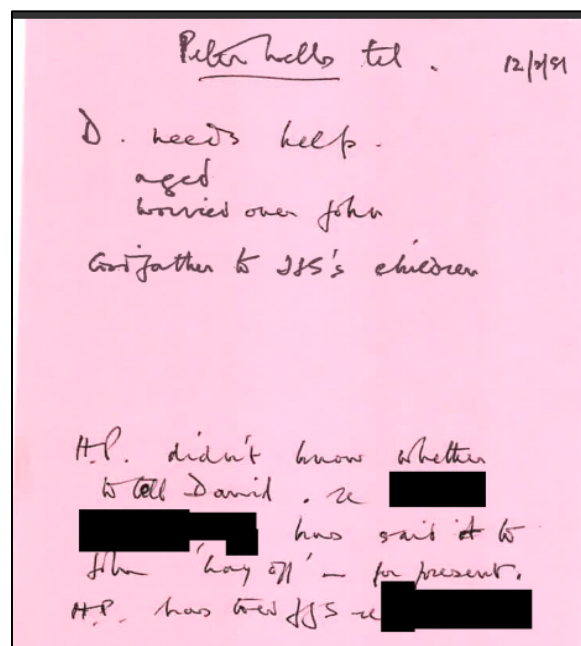 Peter Wells tel. 12/2/81
D. needs help.
aged
worried over John
Godfather to JJS's children
H.P. didn't know whether
to tell David. re
has said to
John 'lay off' – for present.
H.P. has told JJS re